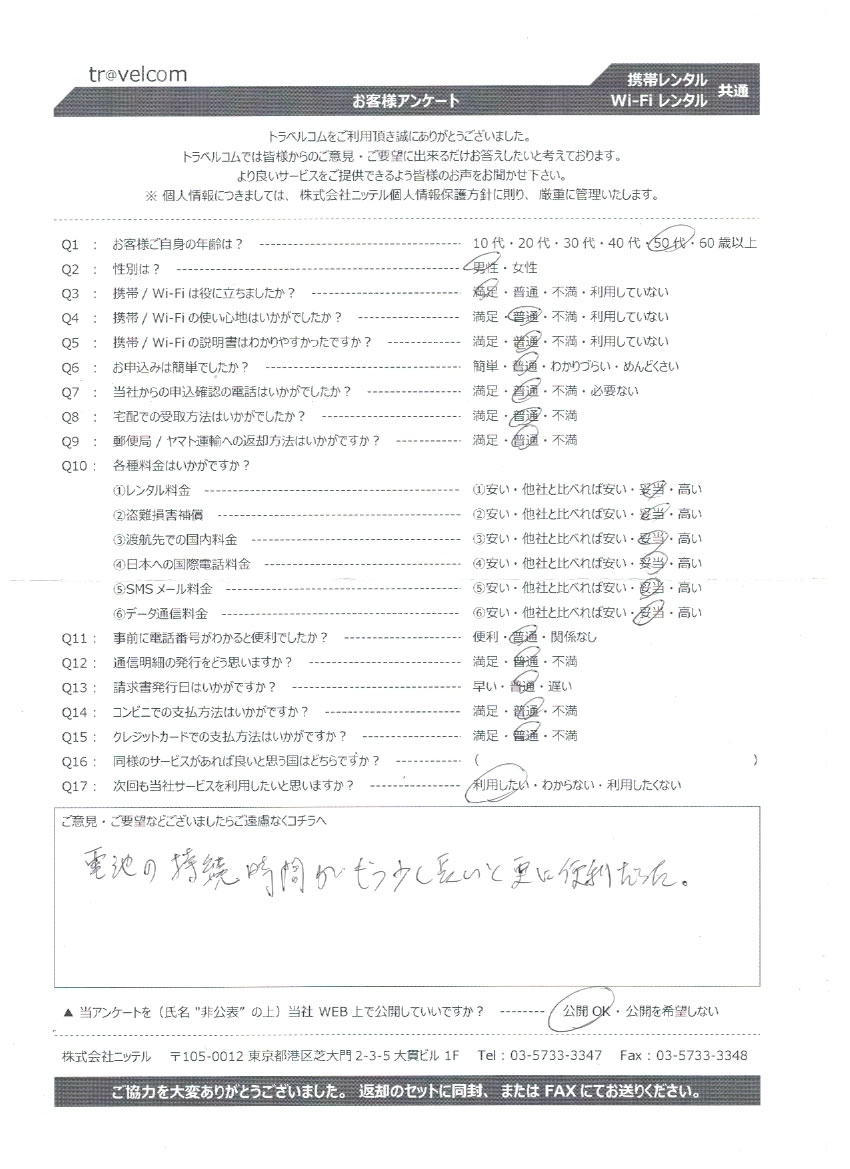 tr@velcom
お客様アンケート
携帯レンタル
Wi-Fi レンタル
共通
トラベルコムをご利用頂き誠にありがとうございました。
トラベルコムでは皆様からのご意見・ご要望に出来るだけお答えしたいと考えております。
より良いサービスをご提供できるよう皆様のお声をお聞かせ下さい。
※ 個人情報につきましては、株式会社ニッテル個人情報保護方針に則り、厳重に管理いたします。
Q1 : お客様ご自身の年齢は? 10代・20代・30代・40代・50代・60歳以上
Q2 : 性別は? 男性・女性
Q3 : 携帯 / Wi-Fi は役に立ちましたか? 満足・普通・不満・利用していない
Q4 : 携帯 / Wi-Fi の使い心地はいかがでしたか? 満足・普通・不満・利用していない
Q5 : 携帯 / Wi-Fi の説明書はわかりやすかったですか? 満足・普通・不満・利用していない
Q6 : お申込みは簡単でしたか? 簡単・普通・わかりづらい・めんどくさい
Q7 : 当社からの申込確認の電話はいかがでしたか? 満足・普通・不満・必要ない
Q8 : 宅配での受取方法はいかがでしたか? 満足・普通・不満
Q9 : 郵便局 / ヤマト運輸への返却方法はいかがですか? 満足・普通・不満
Q10 : 各種料金はいかがですか?
①レンタル料金 ①安い・他社と比べれば安い・妥当・高い
②盗難損害補償 ②安い・他社と比べれば安い・妥当・高い
③渡航先での国内料金 ③安い・他社と比べれば安い・妥当・高い
④日本への国際電話料金 ④安い・他社と比べれば安い・妥当・高い
⑤SMS メール料金 ⑤安い・他社と比べれば安い・妥当・高い
⑥データ通信料金 ⑥安い・他社と比べれば安い・妥当・高い
Q11 : 事前に電話番号がわかると便利でしたか? 便利・普通・関係なし
Q12 : 通信明細の発行をどう思いますか? 満足・普通・不満
Q13 : 請求書発行日はいかがですか? 早い・普通・遅い
Q14 : コンビニでの支払方法はいかがですか? 満足・普通・不満
Q15 : クレジットカードでの支払方法はいかがですか? 満足・普通・不満
Q16 : 同様のサービスがあれば良いと思う国はどちらですか? ( )
Q17 : 次回も当社サービスを利用したいと思いますか? 利用したい・わからない・利用したくない
ご意見・ご要望などございましたらご遠慮なくコチラへ
電池の持続時間がもう少し長いと更に便利だった。
▲ 当アンケートを (氏名 "非公表" の上) 当社 WEB 上で公開していいですか? 公開 OK・公開を希望しない
株式会社ニッテル 〒105-0012 東京都港区芝大門 2-3-5 大貫ビル 1F Tel : 03-5733-3347 Fax : 03-5733-3348
ご協力を大変ありがとうございました。 返却のセットに同封、または FAX にてお送りください。